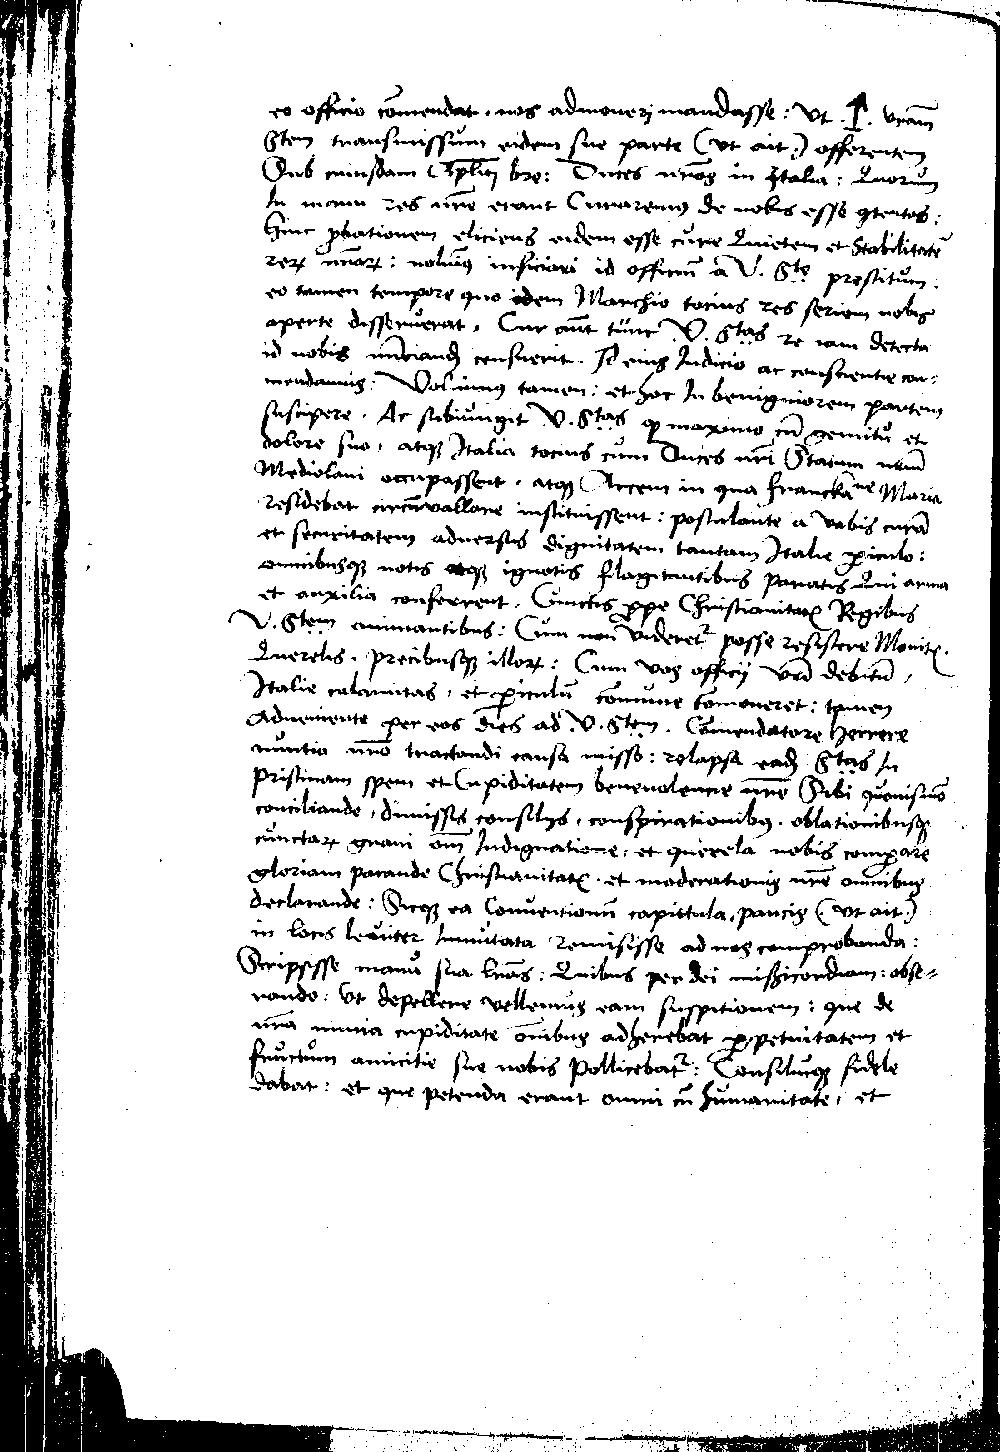 eo officio com̄endat. nos admoneri mandasse: Vt. P. vr̄am
Stem transmissum eidem sue parte (vt ait:) offerentem
Sub cuiusdam br̄e: Duces nr̄os in Italia: Quorum
In manu res nr̄e erant Curaremus de nobis esse ꝯtentos:
Hinc ꝓbationem eliciens eidem esse cure Quietem et Stabilitatē
rerꝝ nr̄arꝝ: nolum̄us inficiari id officiū a V. Ste prestitum.
eo tamen tempore quo idem Marchio tocius res seriem nobis
aperte disseruerat. Cur aūt tunc V. Stas re iam detecta
id nobis nūciandū censuerit. Id eius Iudicio ac conscientie com:
mendamus: Volumus tamen: et hoc In benigniorem partem
suscipere. Ac subiungit V. Stas ꝙ maximo cū gemitu et
dolore suo, atqꝫ Italia tocius cum Duces nr̄i Statum nr̄um
Mediolani occupassent. atqꝫ Arcem in qua Franc Maria
residebat circūvallare instituissent: postulante a vobis curā
et securitatem adversus dignitatem tantam Italie ꝑiculo:
omnibusqꝫ notis atqꝫ ignotis flagitantibus paratis Qui arma
et auxilia conferrent. Cunctis ꝓpe Christianitatꝭ Regibus
V. Stem animantibus: Cum non videretur posse resistere Monitꝭ.
Querelis. precibusqꝫ illorꝝ: Cum vos officij vr̄i debitū,
Italie calamitas, et ꝑiculū com̄une com̄oneret: tamen
Adveniente per eos dies ad V. Stem. Com̄endatore Herrere
nuntio nr̄o tractandi causa misso: relapsa eadē Stas In
pristinam spem et Cupiditatem benevolencie nr̄e Sibi
conciliande, dimissis consilijs, conspirationibus. oblationibusqꝫ
cunctarꝝ gravi om̄i Indignatione: et querela nobis comparare
gloriam parande Christianitatꝭ. et moderationis nr̄e omnibus
declarande: Sicqꝫ ea Conventionū capittula, paucis (vt ait:)
in locis leviter Immutata remisisse ad nos comprobanda:
Scripsisse manu sua lr̄as: Quibus per dei misericordiam: obse-
crando: Vt depellere vellemus eam suspitionem: que de
nr̄a nimia cupiditate om̄ibus adherebat ꝑpetuitatem et
fructum amicitie sue nobis Pollicebatur: Consiliūqꝫ fidele
dabat: et que petenda erant omni cū humanitate, et